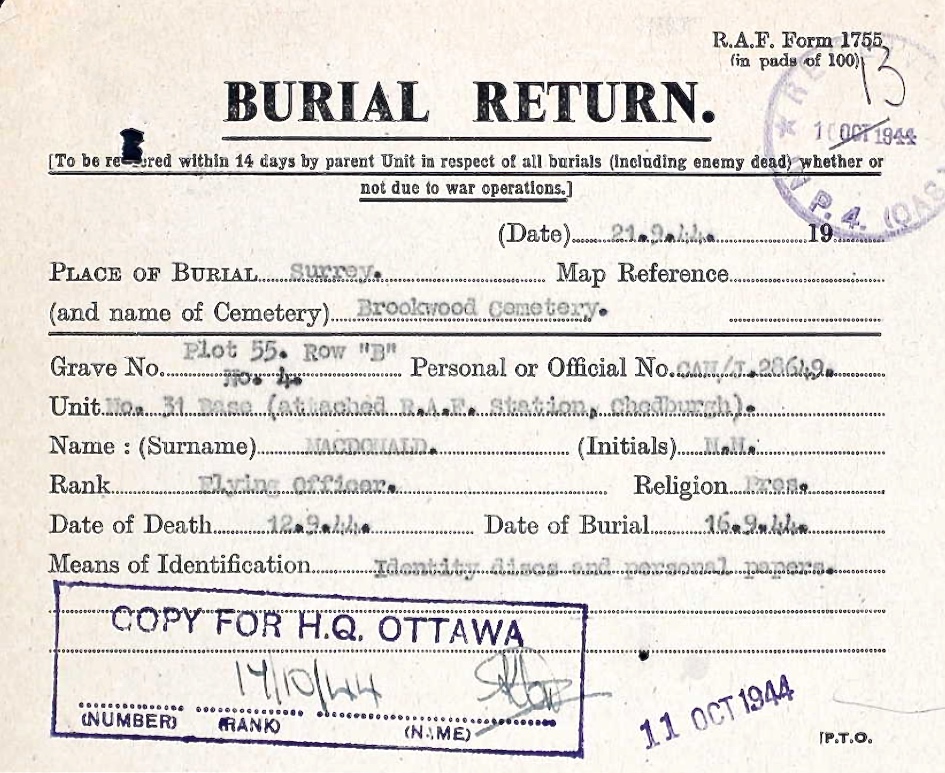 R.A.F. Form 1755
(in pads of 100)
13
BURIAL RETURN.
10 OCT 1944
P. 4. (CAS)
[To be re ered within 14 days by parent Unit in respect of all burials (including enemy dead) whether or
not due to war operations.]
(Date) 21.9.44. 19
PLACE OF BURIAL Surrey. Map Reference
(and name of Cemetery) Brookwood Cemetery.
Plot 55. Row "B"
Grave No. No. 4. Personal or Official No. CAN/J.28649.
Unit No. 31 Base (attached R.A.F. Station, Chedburgh).
Name : (Surname) MACDONALD. (Initials) N.N.
Rank Flying Officer. Religion Pres.
Date of Death 12.9.44. Date of Burial 16.9.44.
Means of Identification Identity discs and personal papers.
COPY FOR H.Q. OTTAWA
17/10/44
(NUMBER) (RANK) (NAME)
11 OCT 1944
[P.T.O.